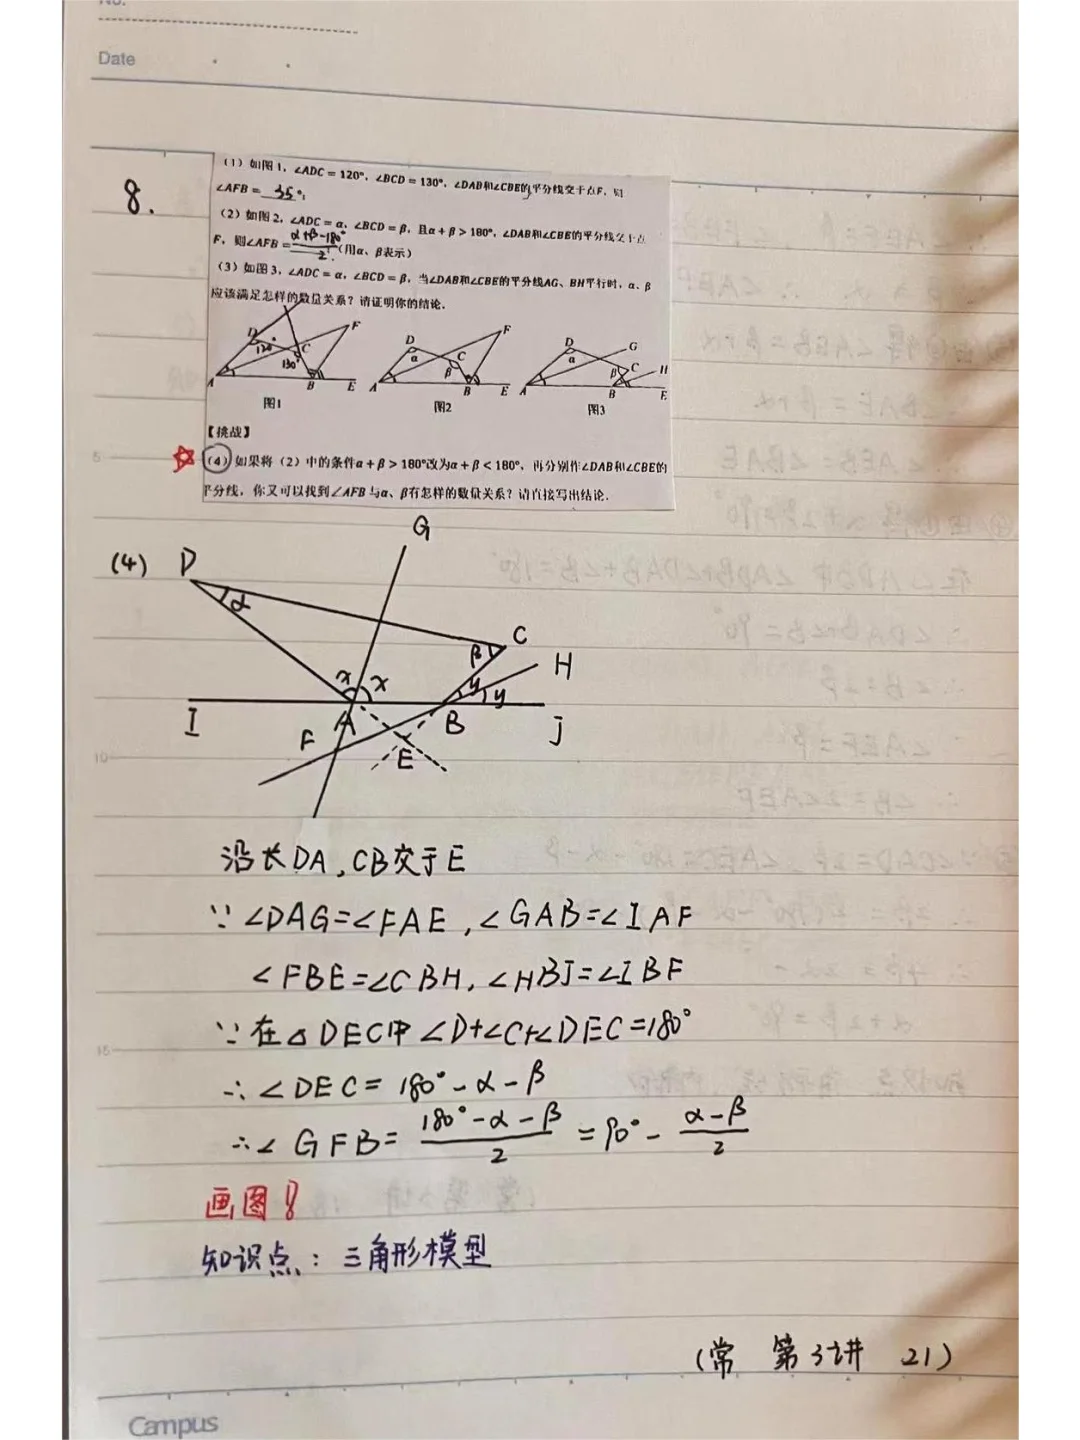 No.
Date
8.
(1) 如图1, ∠ADC = 120°, ∠BCD = 130°, ∠DAB和∠CBE的平分线交于点F, 则
∠AFB = 35°;
(2) 如图2, ∠ADC = α, ∠BCD = β, 且α + β > 180°, ∠DAB和∠CBE的平分线交于点
F, 则∠AFB = (α+β-180°)/2 (用α、β表示)
(3) 如图3, ∠ADC = α, ∠BCD = β, 当∠DAB和∠CBE的平分线AG、BH平行时, α、β
应该满足怎样的数量关系? 请证明你的结论.
D 120° C 130° F A B E
D α C β F A B E
D α G β C H A B E
图1 图2 图3
【挑战】
(4) 如果将 (2) 中的条件α + β > 180°改为α + β < 180°, 再分别作∠DAB和∠CBE的
平分线, 你又可以找到∠AFB与α、β有怎样的数量关系? 请直接写出结论.
(4)
G
D α
C β
H
x x y y
I A B J
F E
沿长DA,CB交于E
∵ ∠DAG=∠FAE,∠GAB=∠IAF
∠FBE=∠CBH,∠HBJ=∠IBF
∵在△DEC中 ∠D+∠C+∠DEC=180°
∴∠DEC= 180°-α-β
∴∠GFB= (180°-α-β)/2 =90°- (α-β)/2
画图!
知识点: 三角形模型
(常 第3讲 21)
5
10
15
Campus